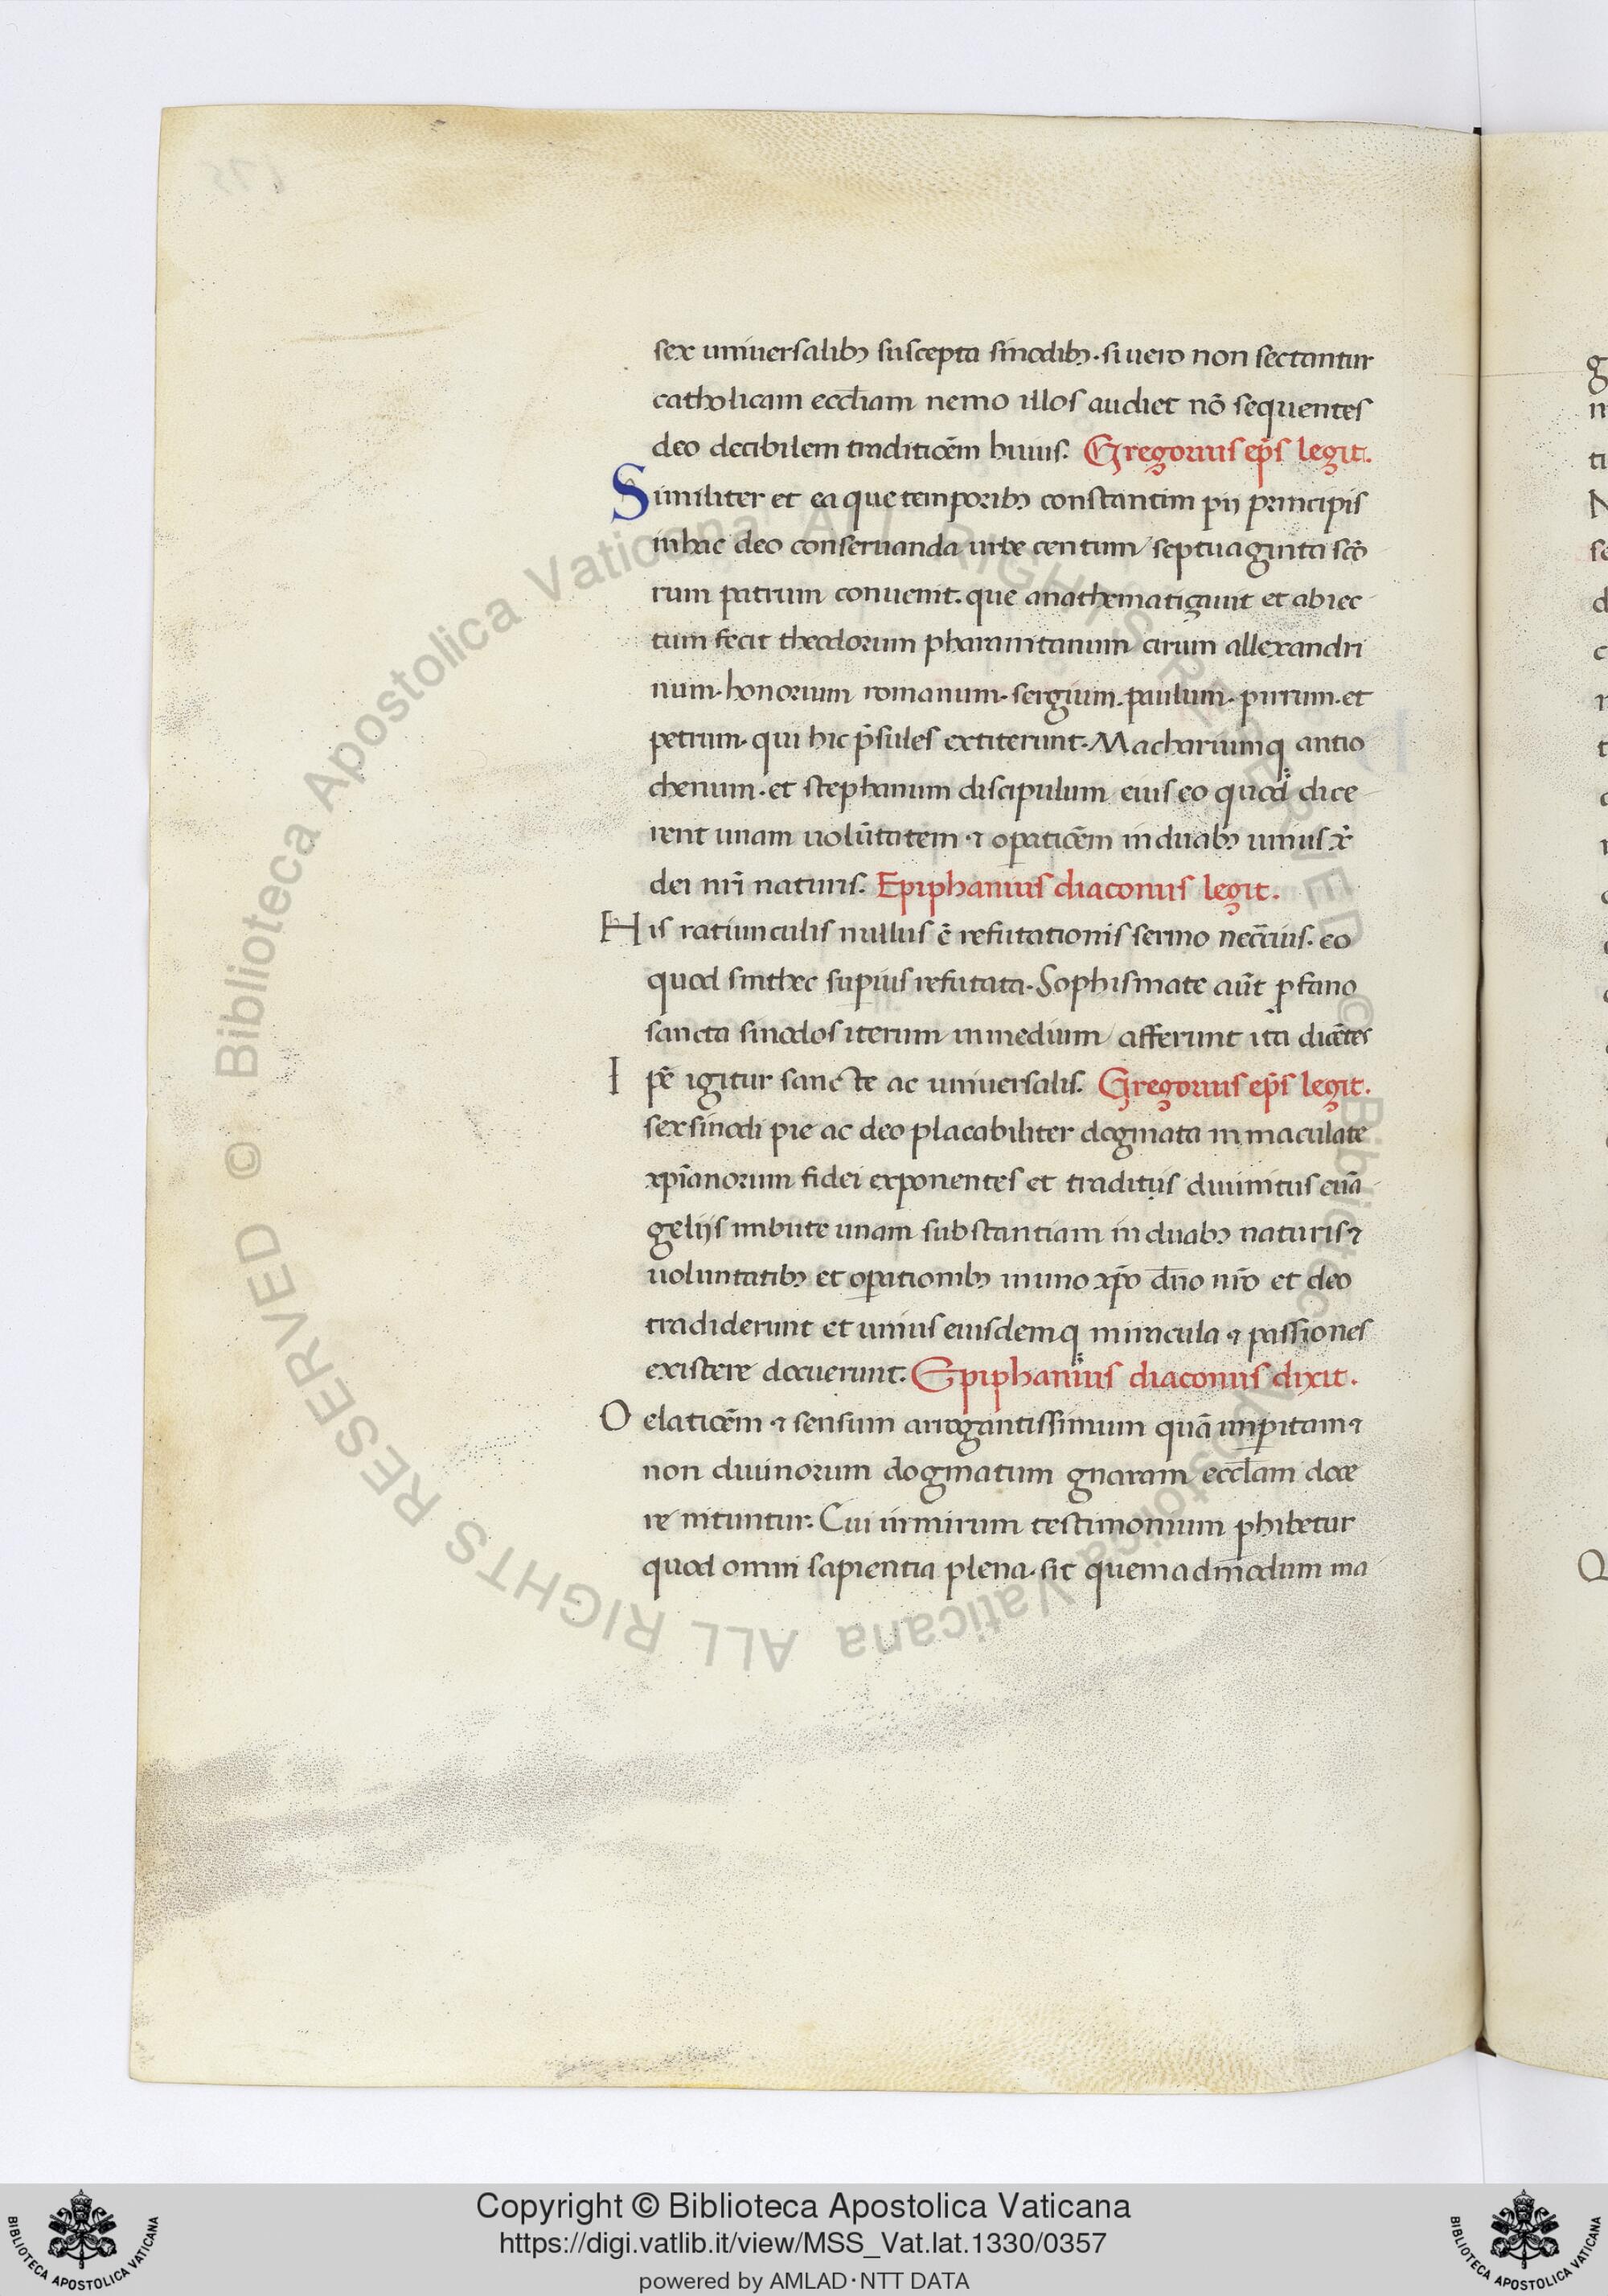 sex uniuersalibꝫ suscepta sinodibꝫ. si uero non sectantur
catholicam eccl̄iam nemo illos audiet nō sequentes
deo decibilem traditiōem huius. Gregorius ep̄s legit.
Similiter et ea que temporibꝫ constantini pij principis
in hac deo conseruanda urbe centum septuaginta scō
rum patrum conuenit. que anathematizauit et abiec
tum fecit theodorum pharanitanum cirum allexandri
num. honorium romanum. sergium. paulum. pirrum. et
petrum. qui hic p̄sules extiterunt. Machariumqꝫ antio
chenum. et stephanum discipulum eius eo quod dice
rent unam uolūtatem ⁊ oꝑatiōem in duabꝫ unius xp̄i
dei nr̄i naturis. Epiphanius diaconus legit.
His ratiunculis nullus ē refutationis sermo necc̄ius. eo
quod sint hec supius refutata. Sophismate aūt ꝓfano
sancta sinodos iterum in medium afferunt ita dicētes
Ipē igitur sancte ac uniuersalis. Gregorius ep̄s legit.
sex sinodi pie ac deo placabiliter dogmata inmaculate
xp̄ianorum fidei exponentes et traditus diuinitus euā
gelijs imbute unam substantiam in duabꝫ naturis ⁊
uoluntatibꝫ et oꝑationibꝫ in uno xp̄o dn̄o nr̄o et deo
tradiderunt et unius eiusdemqꝫ miracula ⁊ passiones
existere docuerunt. Epiphanius diaconus dixit.
O elatiōem ⁊ sensum arrogantissimum quā imꝑitam ⁊
non diuinorum dogmatum gnaram eccl̄am doce
re nituntur. Cui nimirum testimonium ꝑhibetur
quod omni sapientia plena. sit quemadmodum ma
Copyright © Biblioteca Apostolica Vaticana
https://digi.vatlib.it/view/MSS_Vat.lat.1330/0357
powered by AMLAD·NTT DATA
BIBLIOTECA APOSTOLICA VATICANA
BIBLIOTECA APOSTOLICA VATICANA
© Biblioteca Apostolica Vaticana ALL RIGHTS RESERVED
© Biblioteca Apostolica Vaticana ALL RIGHTS RESERVED